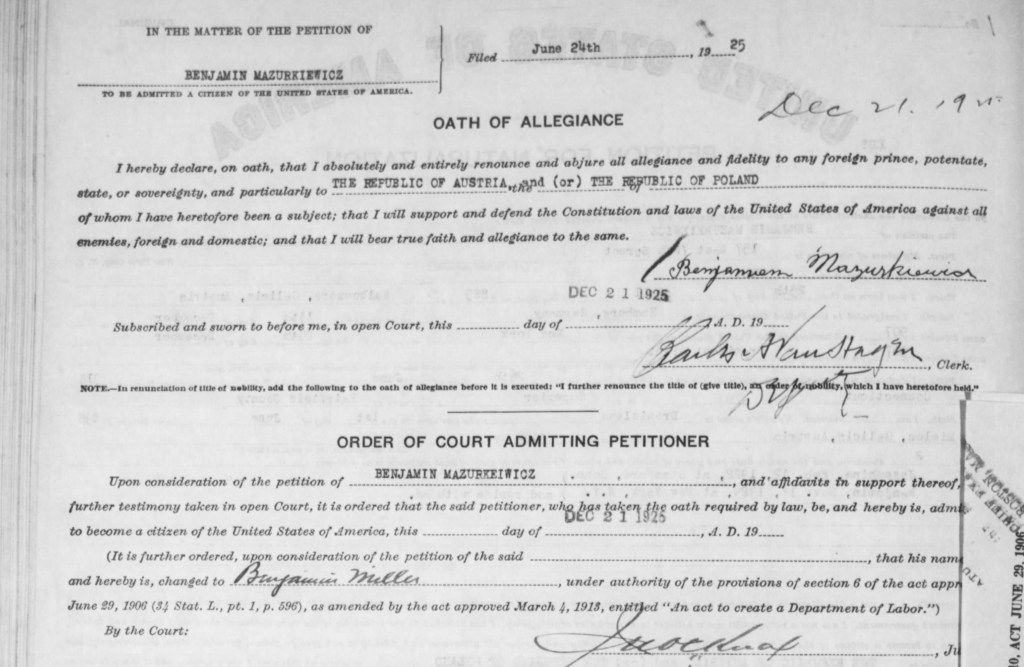 IN THE MATTER OF THE PETITION OF
Filed June 24th, 19 25
BENJAMIN MAZURKIEWICZ
TO BE ADMITTED A CITIZEN OF THE UNITED STATES OF AMERICA.
Dec 21. 19
OATH OF ALLEGIANCE
I hereby declare, on oath, that I absolutely and entirely renounce and abjure all allegiance and fidelity to any foreign prince, potentate,
state, or sovereignty, and particularly to THE REPUBLIC OF AUSTRIA, and (or) THE REPUBLIC OF POLAND
of whom I have heretofore been a subject; that I will support and defend the Constitution and laws of the United States of America against all
enemies, foreign and domestic; and that I will bear true faith and allegiance to the same.
Benjamin Mazurkiewicz
DEC 21 1925
Subscribed and sworn to before me, in open Court, this day of , A. D. 19
, Clerk.
NOTE.—In renunciation of title of nobility, add the following to the oath of allegiance before it is executed: "I further renounce the title of (give title), an order of nobility, which I have heretofore held."
ORDER OF COURT ADMITTING PETITIONER
Upon consideration of the petition of BENJAMIN MAZURKEIWICZ, and affidavits in support thereof,
further testimony taken in open Court, it is ordered that the said petitioner, who has taken the oath required by law, be, and hereby is, admi
DEC 21 1925
to become a citizen of the United States of America, this day of , A. D. 19
(It is further ordered, upon consideration of the petition of the said , that his nam
and hereby is, changed to Benjamin Miller, under authority of the provisions of section 6 of the act appr
June 29, 1906 (34 Stat. L., pt. 1, p. 596), as amended by the act approved March 4, 1913, entitled "An act to create a Department of Labor.")
By the Court:
, Ju
ACT JUNE 29, 1906